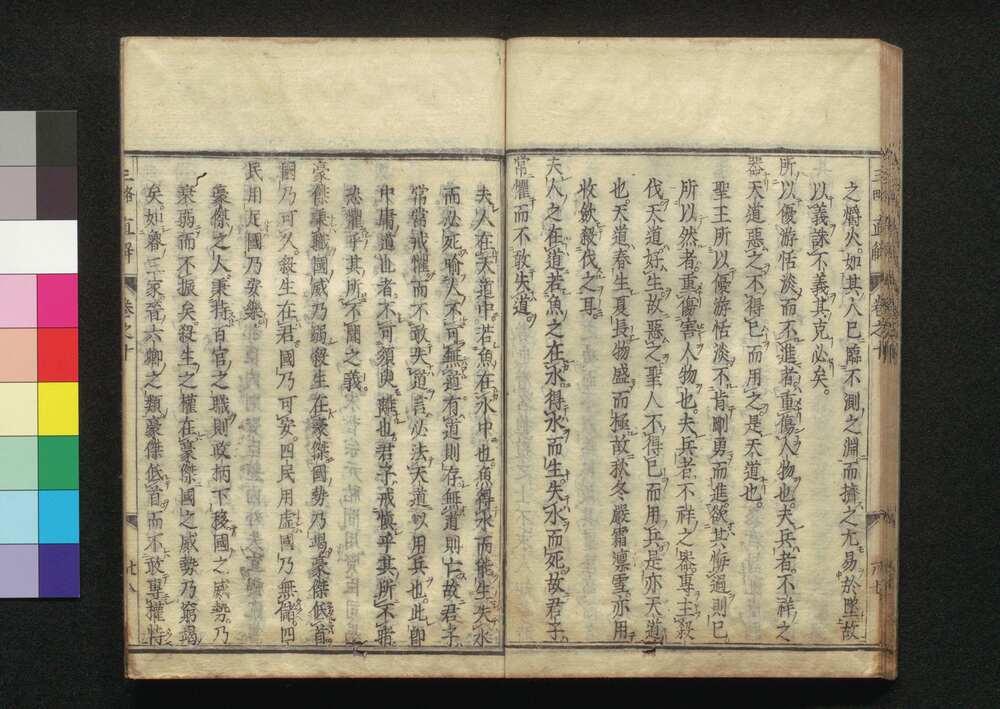 三略直解 卷之十
之爝火如其人已臨不測之淵而擠之尤易於墜故
以義誅不義其克必矣
所以優游恬淡而不進者重傷人物也夫兵者不祥之
器天道惡之不得已而用之是天道也
聖王所以優游恬淡不肯剛勇而進欲其悔過則已
所以然者重傷害人物也夫兵者不祥之器專主殺
伐天道好生故惡之聖人不得已而用兵是亦天道
也天道春生夏長物盛而極故秋冬嚴霜凛雪亦用
收斂殺伐之耳
夫人之在道若魚之在水得水而生失水而死故君子
常懼而不敢失道
夫人在天道中若魚在水中也魚得水而能生失水
而必死喻人不可無道有道則存無道則亡故君子
常當戒懼而不敢失道言必法天道以用兵也此即
中庸道也者不可須臾離也君子戒愼乎其所不睹
恐懼乎其所不聞之義
豪傑秉職國威乃弱殺生在豪傑國勢乃竭豪傑低首
國乃可久殺生在君國乃可安四民用虛國乃無儲四
民用足國乃安樂
豪傑之人秉持百官之職則政柄下移國之威勢乃
衰弱而不振矣殺生之權在豪傑國之威勢乃窮竭
矣如魯三家晉六卿之類豪傑低首而不敢專權恃
三略直解 卷之十